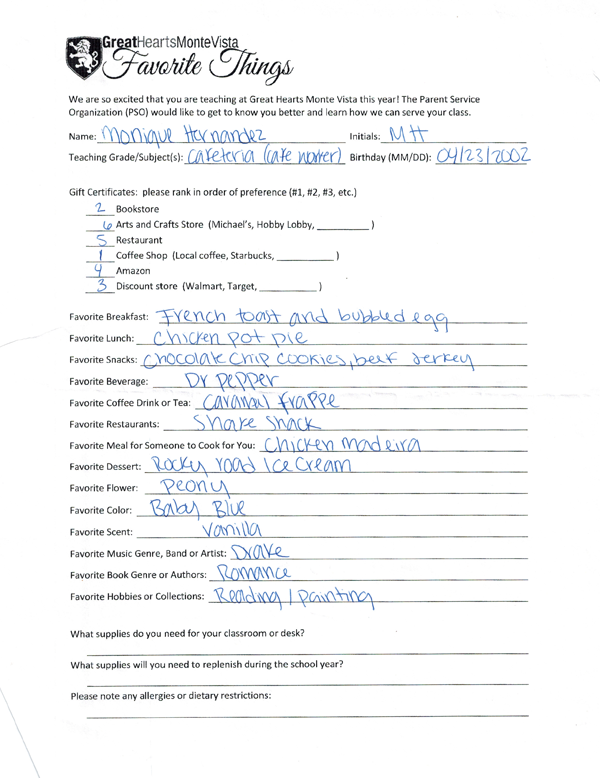 GreatHeartsMonteVista
Favorite Things
We are so excited that you are teaching at Great Hearts Monte Vista this year! The Parent Service
Organization (PSO) would like to get to know you better and learn how we can serve your class.
Name: Monique Hernandez Initials: MH
Teaching Grade/Subject(s): Cafeteria (cafe worker) Birthday (MM/DD): 04/23/2002
Gift Certificates: please rank in order of preference (#1, #2, #3, etc.)
2 Bookstore
6 Arts and Crafts Store (Michael's, Hobby Lobby, __________ )
5 Restaurant
1 Coffee Shop (Local coffee, Starbucks, ___________ )
4 Amazon
3 Discount store (Walmart, Target, ___________ )
Favorite Breakfast: French toast and bubbled egg
Favorite Lunch: Chicken pot pie
Favorite Snacks: Chocolate Chip cookies, beef Jerkey
Favorite Beverage: Dr Pepper
Favorite Coffee Drink or Tea: Caramel frappe
Favorite Restaurants: Shake Shack
Favorite Meal for Someone to Cook for You: Chicken madeira
Favorite Dessert: Rocky road Ice Cream
Favorite Flower: Peony
Favorite Color: Baby Blue
Favorite Scent: Vanilla
Favorite Music Genre, Band or Artist: Drake
Favorite Book Genre or Authors: Romance
Favorite Hobbies or Collections: Reading / painting
What supplies do you need for your classroom or desk?
What supplies will you need to replenish during the school year?
Please note any allergies or dietary restrictions: